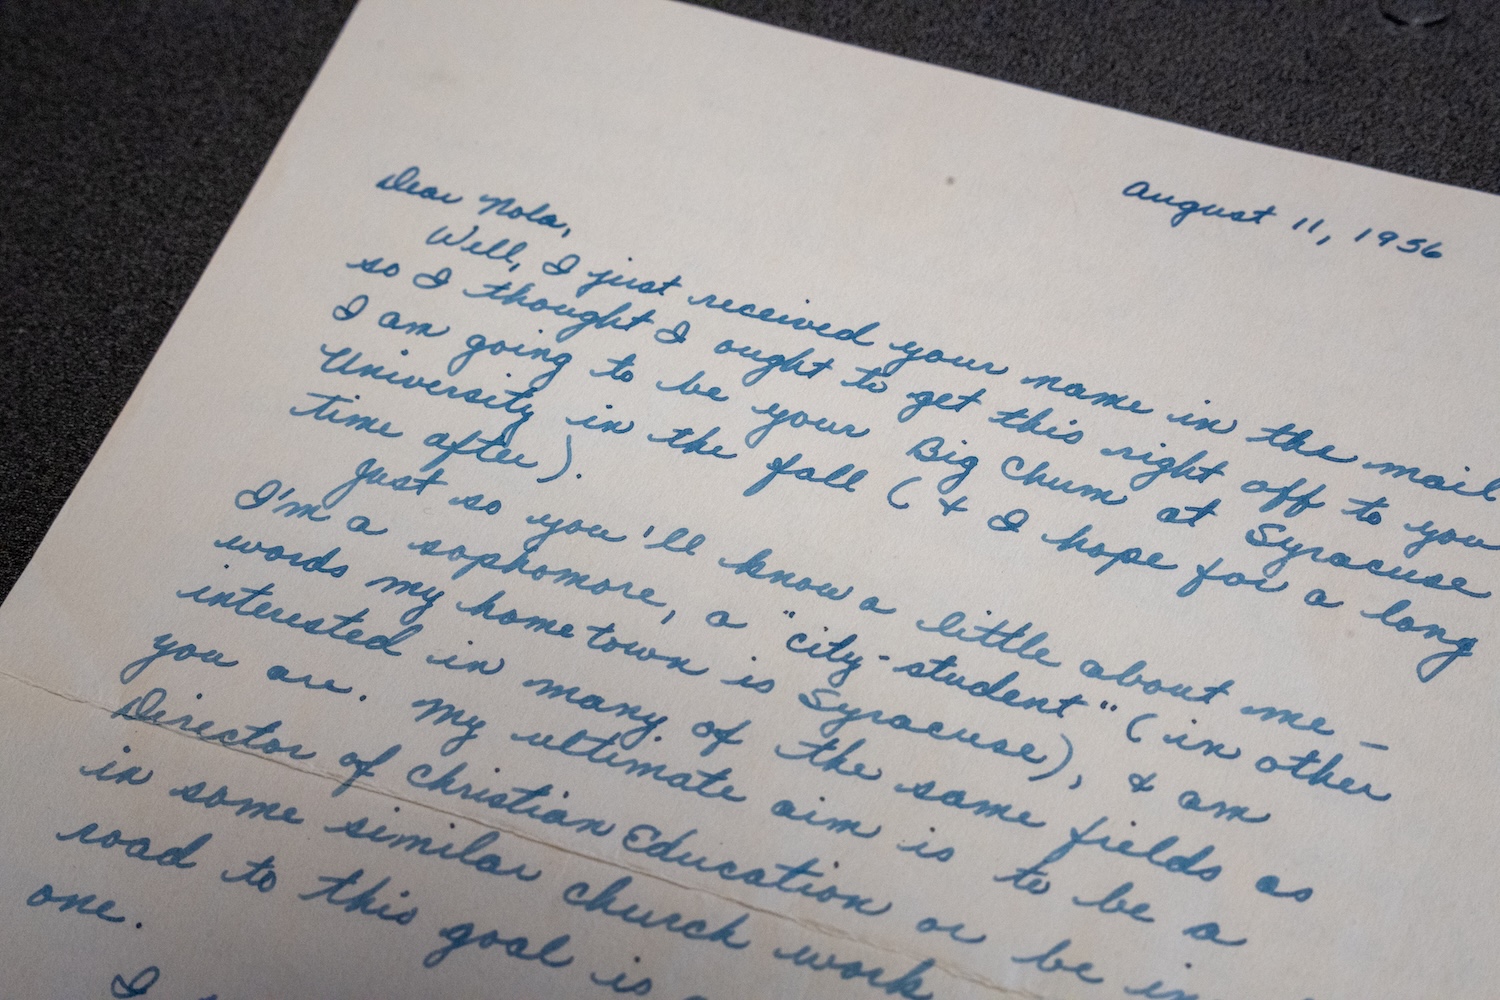 August 11, 1956
Dear Nola,
Well, I just received your name in the mail
so I thought I ought to get this right off to you
I am going to be your Big Chum at Syracuse
University in the fall (& I hope for a long
time after).
Just so you'll know a little about me –
I'm a sophomore, a "city-student" (in other
words my home town is Syracuse), & am
interested in many of the same fields as
you are. My ultimate aim is to be a
Director of Christian Education or be in
in some similar church work
road to this goal is
one.
I